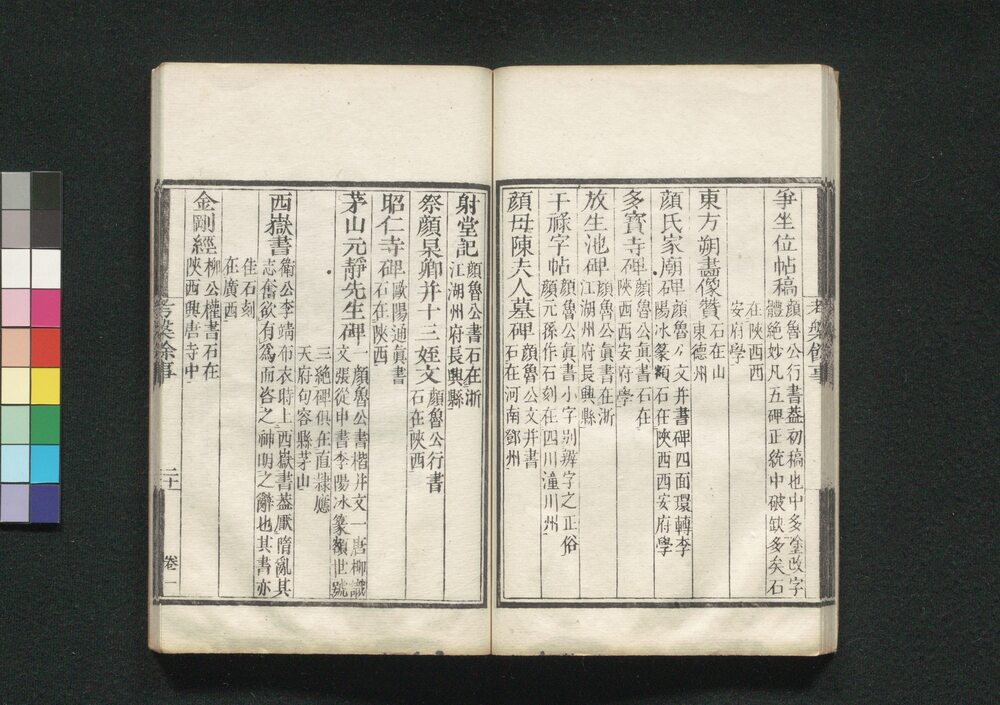 爭坐位帖稿
顏魯公行書葢初稿也中多塗改字
體絶妙凡五碑正統中破缺多矣石
在陝西西
安府學
東方朔畫像贊
石在山
東德州
顏氏家廟碑
顏魯公文并書碑四面環轉李
陽冰篆額石在陝西西安府學
多寳寺碑
顏魯公眞書石在
陝西西安府學
放生池碑
顏魯公眞書在浙
江湖州府長興縣
干祿字帖
顏魯公眞書小字別辨字之正俗
顏元孫作石刻在四川潼川州
顏母陳夫人墓碑
顏魯公文并書
石在河南鄧州
考槃餘事
射堂記
顏魯公書石在浙
江湖州府長興縣
祭顏杲卿并十三姪文
顏魯公行書
石在陝西
昭仁寺碑
歐陽通眞書
石在陝西
茅山元靜先生碑
一顏魯公書楷并文一唐柳識
文張從申書李陽冰篆額世號
三絶碑俱在直隸應
天府句容縣茅山
西嶽書
衛公李靖布衣時上西嶽書葢厭隋亂其
志奮欲有爲而咨之神明之辭也其書亦
佳石刻
在廣西
金剛經
柳公權書石在
陝西興唐寺中
考槃餘事
二十
卷一